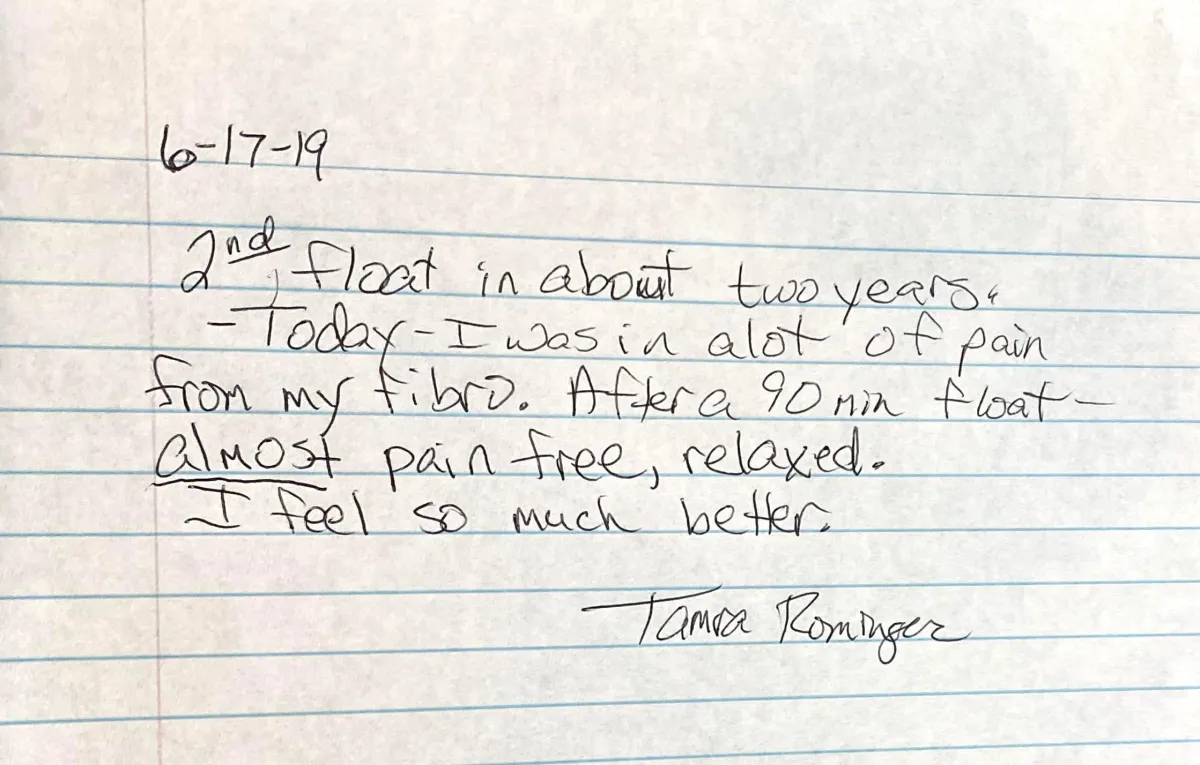 6-17-19
2nd float in about two years.
-Today-I was in alot of pain
from my fibro. After a 90 min float-
almost pain free, relaxed.
I feel so much better.
Tamra Rominger